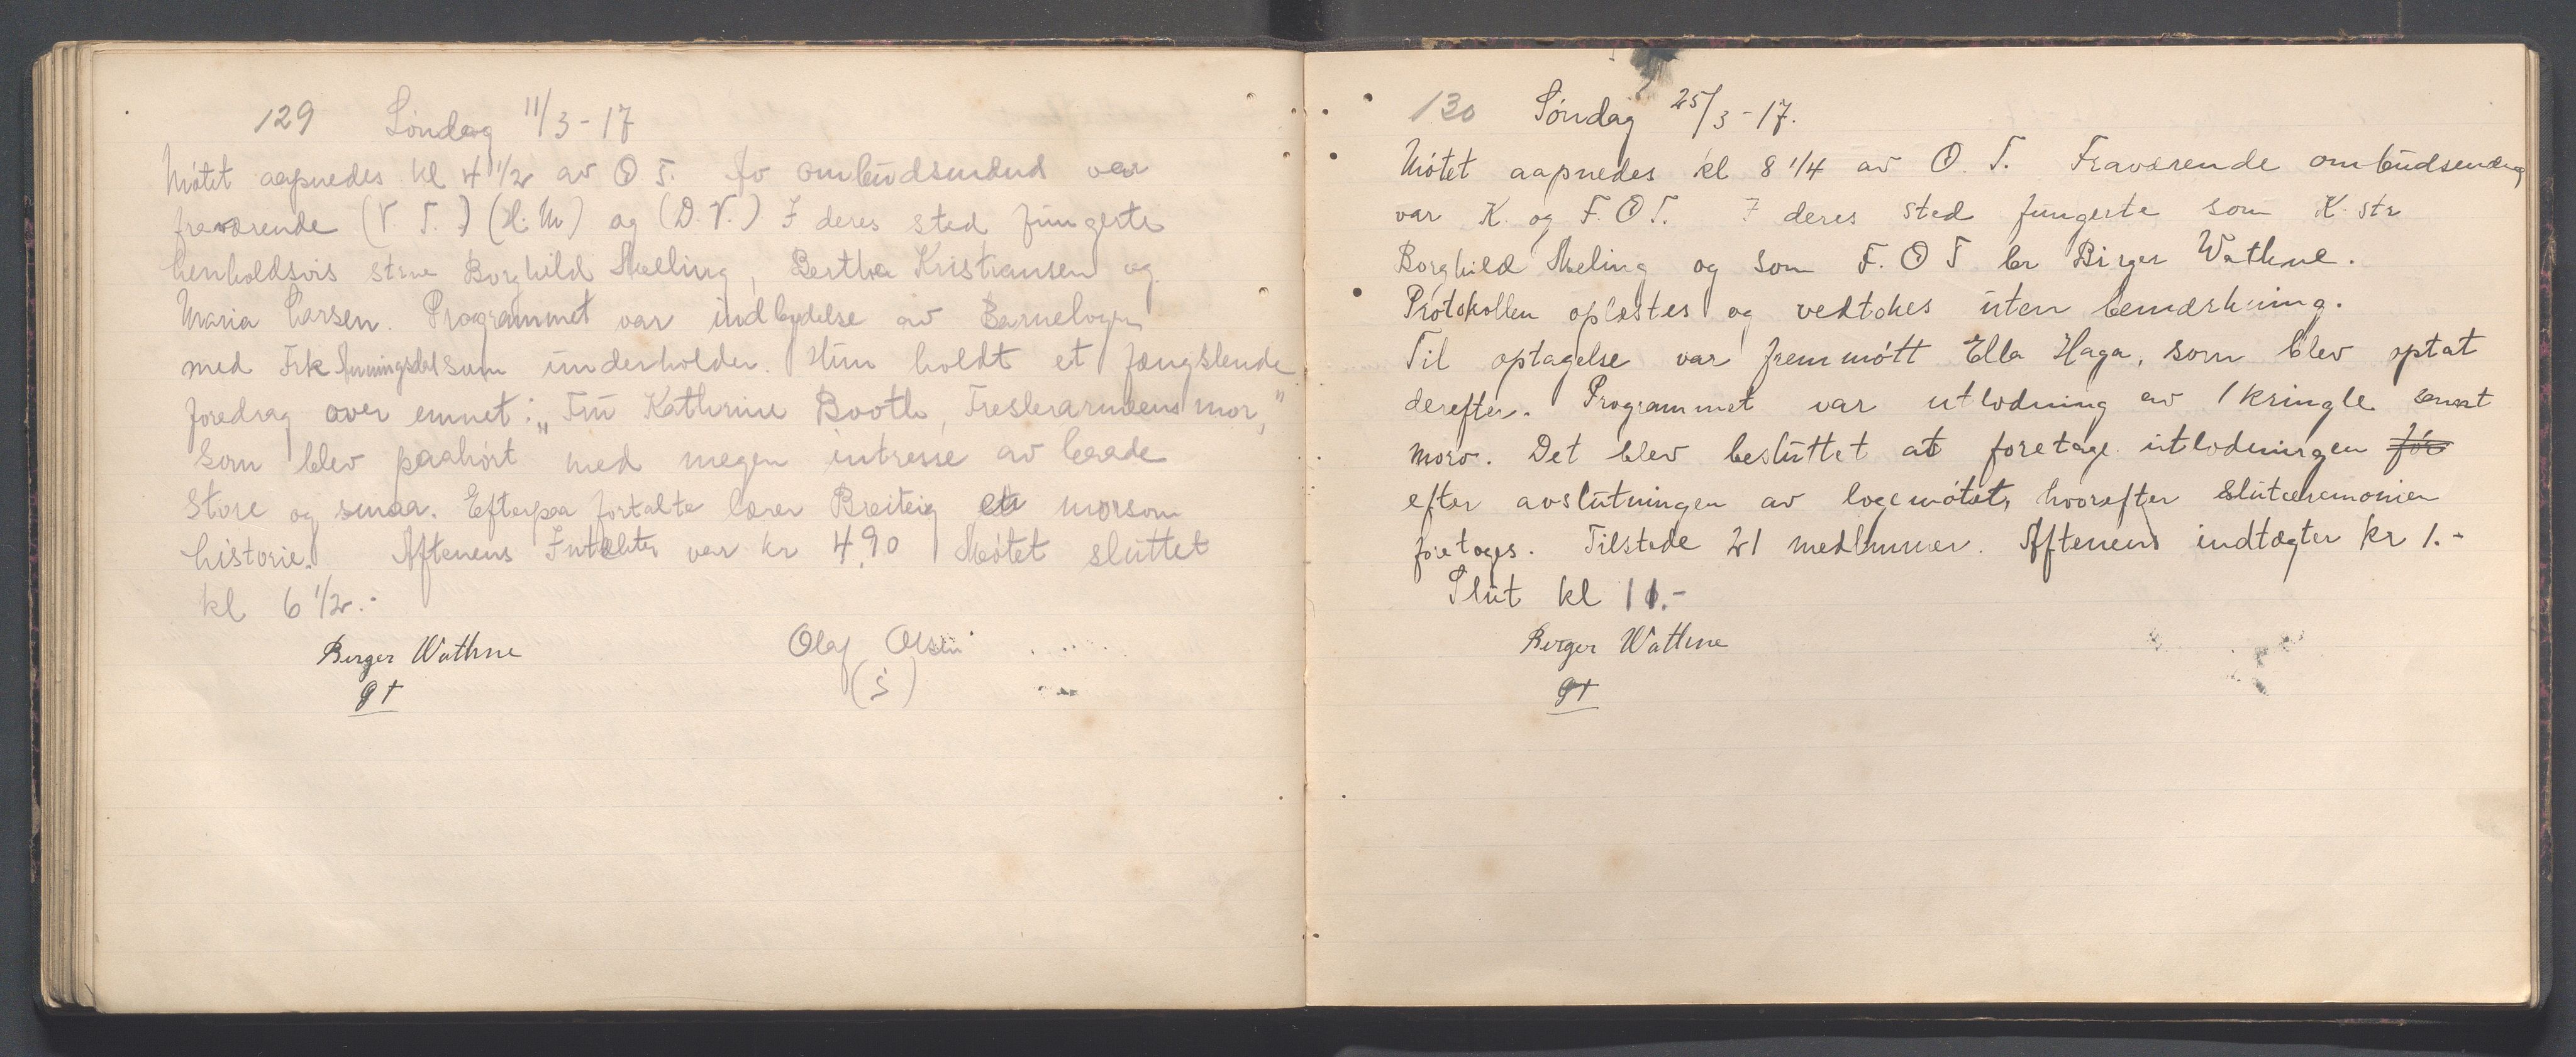 129 Søndag 11/3-17
Møtet aapnedes kl 4 1/2 av O T. Av ombudsmænd var
fraværende (V. T.) (H. M) og (D. V.) I deres sted fungerte
henholdsvis strne Borghild Skeling, Bertha Kristiansen og
Maria Larsen. Programmet var indbydelse av Barnelogen
med Frk som underholder. Hun holdt et fængslende
foredrag over emnet: „Fru Kathrine Booth, Freslerarmeens mor,"
Som blev paahørt med megen intresse av baade
Store og smaa. Efterpaa fortalte lærer Breiteig en morsom
historie. Aftenens Intækter var kr 4,90 Møtet sluttet
kl 6 1/2.-
Birger Wathne
gt
Olaf Olsen
(s)
130 Søndag 25/3-17.
Møtet aapnedes kl 8 1/4 av O. T. Fraværende ombudsmænd
var K. og F. O T. I deres sted fungerte som K. str
Borghild Skeling og som F. O T br Birger Wathne.
Protokollen oplæstes og vedtokes uten bemærkning.
Til optagelse var fremmøtt Ella Haga, som blev optat
derefter. Programmet var utlodning av 1 kringle samt
moro. Det blev besluttet at foretage utlodningen før
efter avslutningen av logemøtet, hvorefter slutceremonien
foretoges. Tilstede 21 medlemmer. Aftenens indtægter kr 1.-
Slut kl 11.-
Birger Wathne
gt